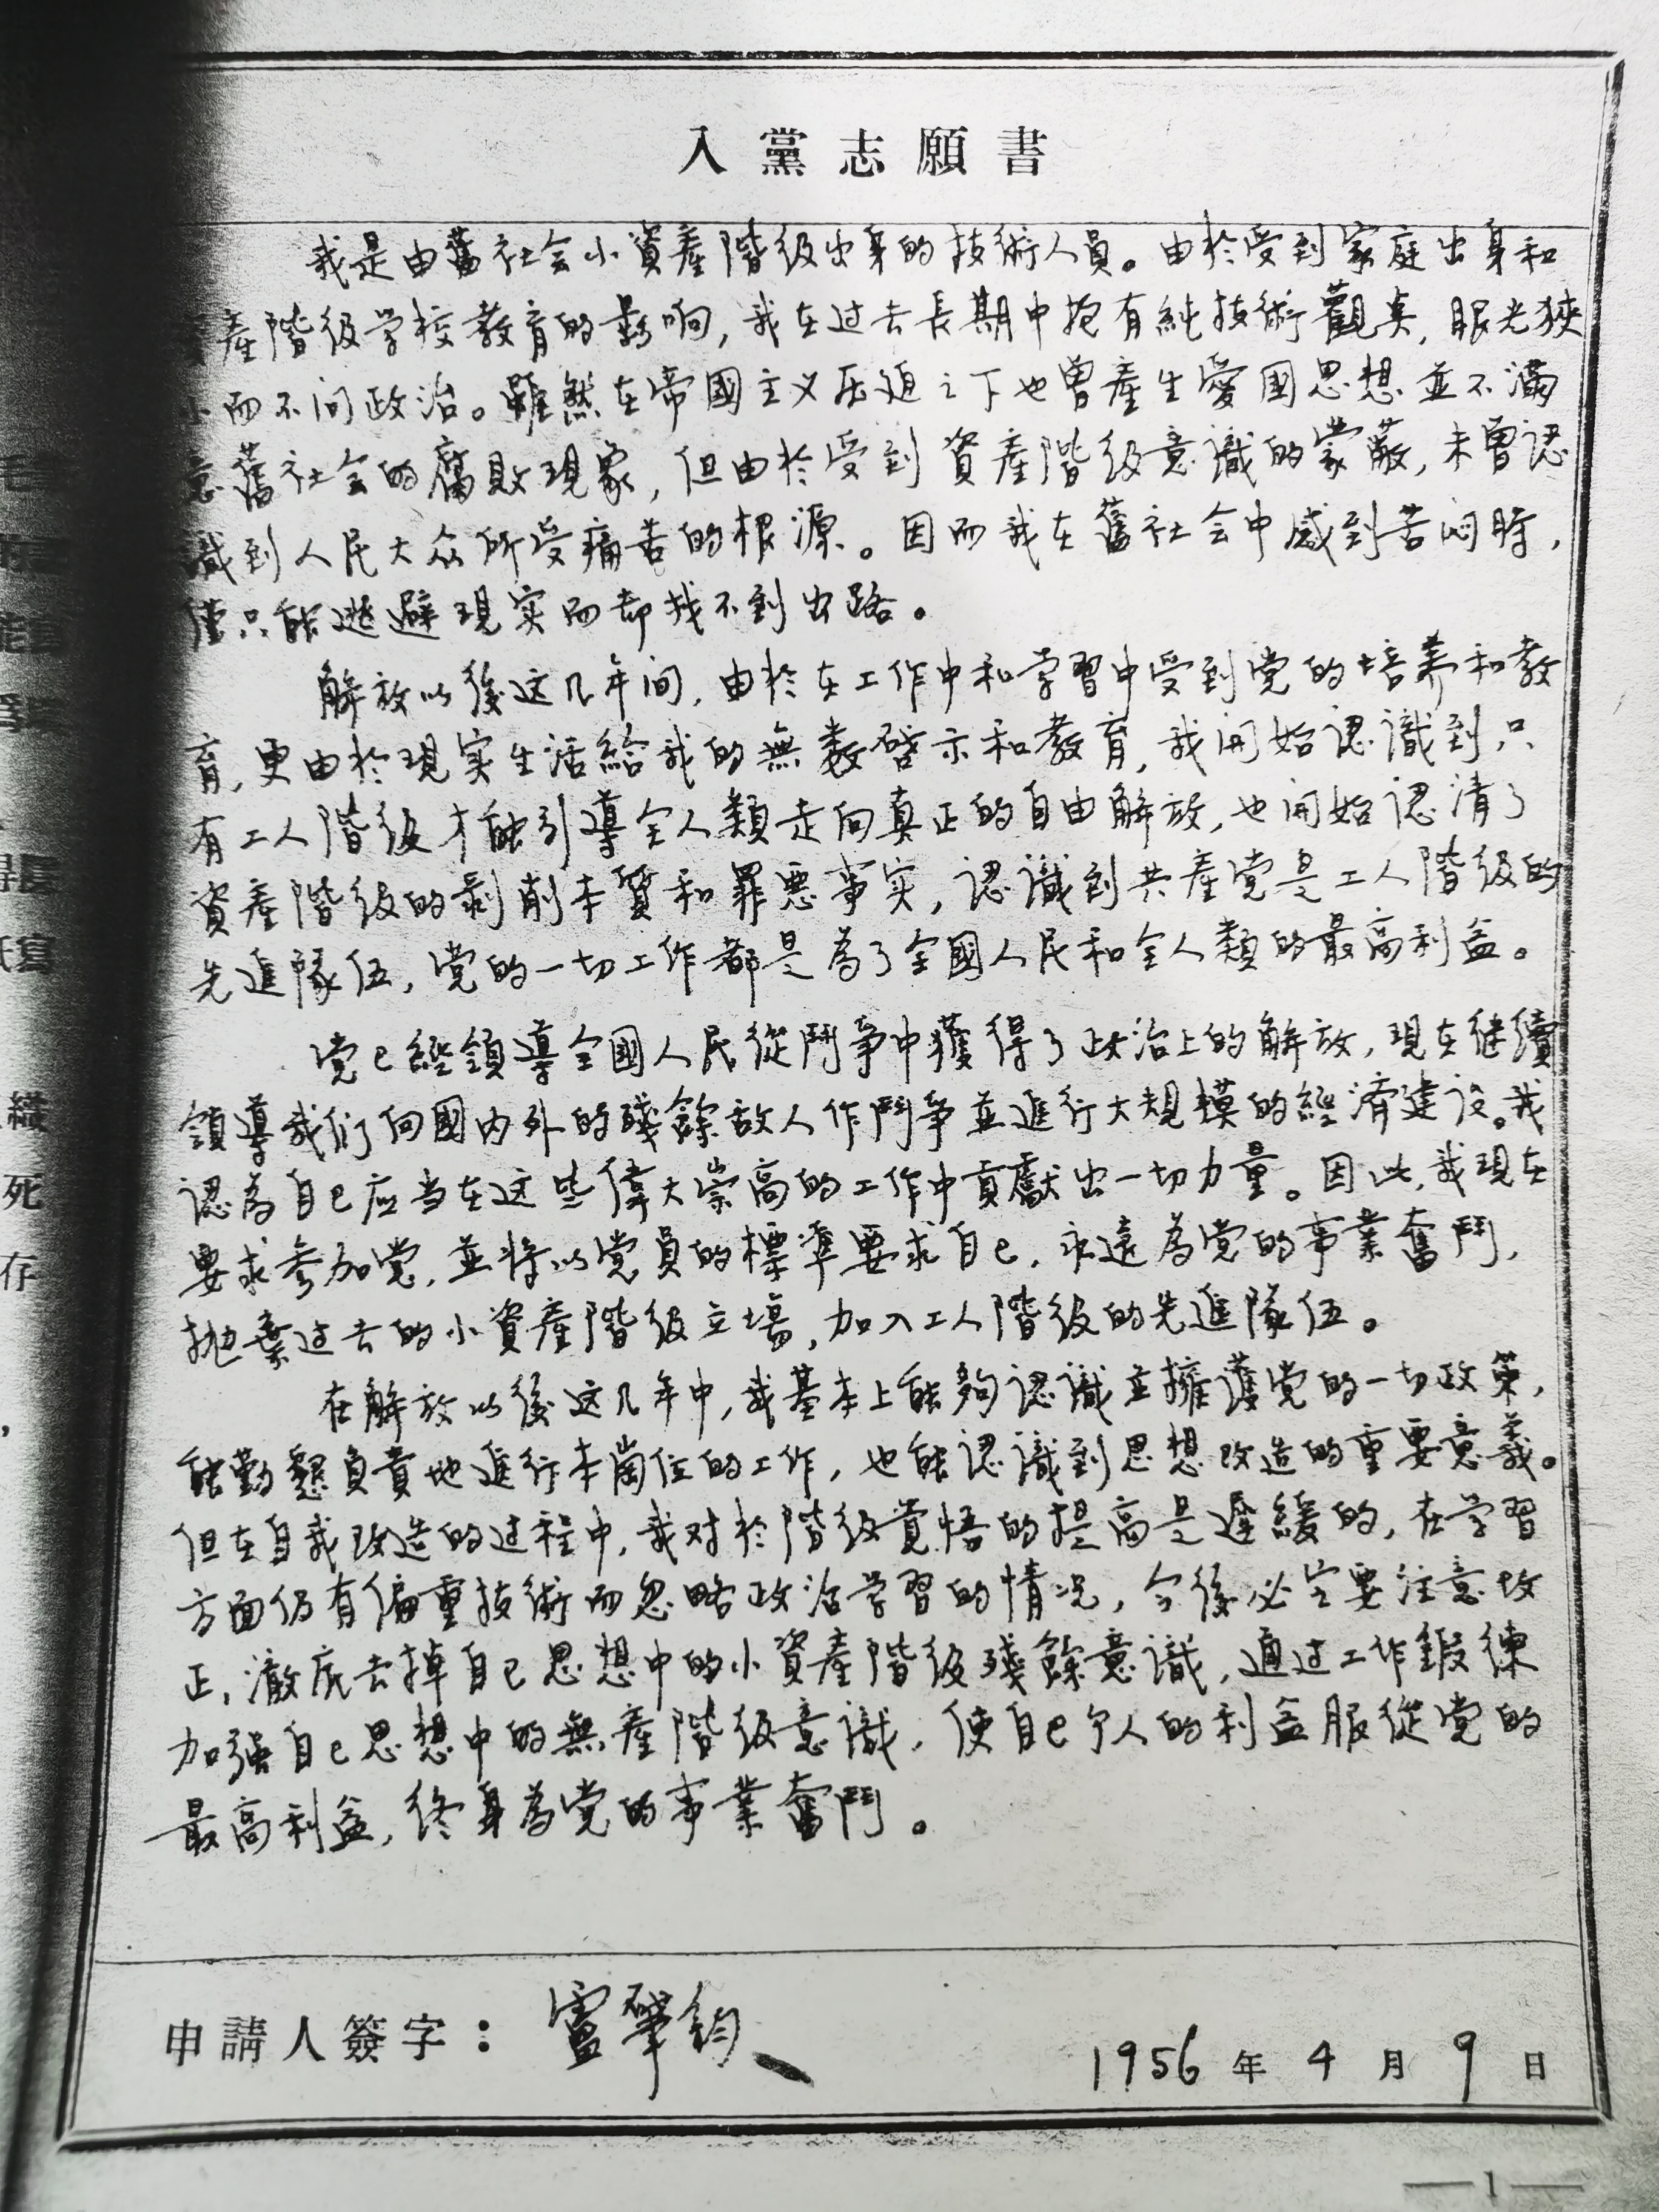 入黨志願書
我是由舊社会小資產階級出身的技術人員。由於受到家庭出身和
產階级学校教育的影响，我在过去長期中抱有純技術觀点，眼光狹
小而不问政治。雖然在帝國主义压迫之下也曾產生愛国思想並不滿
意舊社会的腐敗現象，但由於受到資產階级意識的蒙蔽，未曾認
識到人民大众所受痛苦的根源。因而我在舊社会中感到苦闷時，
僅只能逃避現实而却找不到出路。
解放以後这几年间，由於在工作中和学習中受到党的培养和教
育，更由於現实生活給我的無數啓示和教育，我開始認識到只
有工人階级才能引導全人類走向真正的自由解放，也開始認清了
資產階级的剥削本質和罪惡事实，認識到共產党是工人階级的
先進隊伍，党的一切工作都是為了全國人民和全人類的最高利益。
党已經領導全國人民從鬥爭中獲得了政治上的解放，現在继續
領導我们向國内外的殘餘敌人作鬥爭並進行大規模的經濟建设。我
認為自己应当在这些偉大崇高的工作中貢獻出一切力量。因此，我現在
要求参加党，並将以党員的標準要求自己，永遠為党的事業奮鬥，
抛棄过去的小資產階级立場，加入工人階级的先進隊伍。
在解放以後这几年中，我基本上能夠認識並擁護党的一切政策，
能勤懇負責地進行本崗位的工作，也能認識到思想改造的重要意義。
但在自我改造的过程中，我对於階级覚悟的提高是遲緩的，在学習
方面仍有偏重技術而忽略政治学習的情况，今後必定要注意改
正，澈底去掉自己思想中的小資產階级殘餘意識，通过工作鍛鍊
加强自己思想中的無產階级意識，使自己个人的利益服從党的
最高利益，終身為党的事業奮鬥。
申請人簽字：盧肇鈞
1956年4月9日
—1—